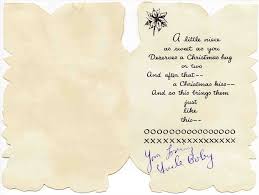 A little niece
as sweet as you
Deserves a Christmas hug
or two
And after that--
a Christmas kiss--
And so this brings them
just
like
this--
OOOOOOOOOOOOO
XXXXXXXXXXXXX
Your Loving
Uncle Boby